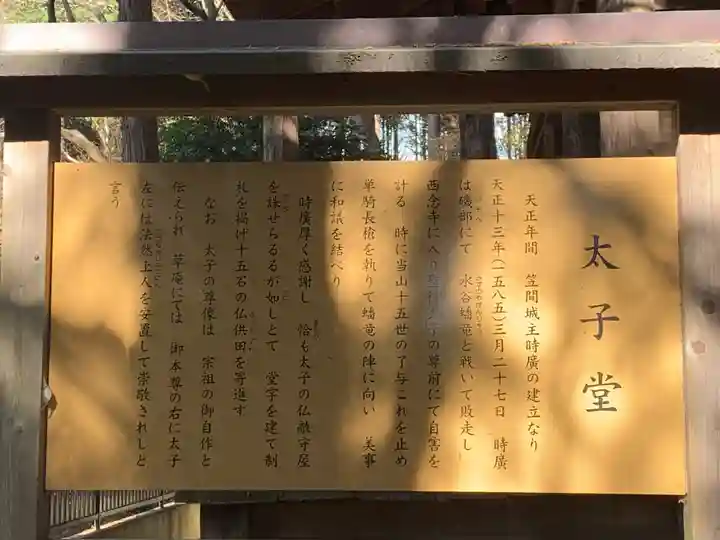 太子堂
天正年間 笠間城主時廣の建立なり
天正十三年(一五八五)三月二十七日 時廣
は磯部にて 水谷蟠竜と戦いて敗走し
西念寺に入り の尊前にて自害を
計る 時に当山十五世の了与これを止め
単騎長槍を執りて蟠竜の陣に向い 美事
に和議を結べり
時廣厚く感謝し 恰も太子の仏敵守屋
を誅せらるるが如しとて 堂宇を建て制
札を掲げ十五石の仏供田を寄進す
なお 太子の尊像は 宗祖の御自作と
伝えられ 草庵にては 御本尊の右に太子
左には法然上人を安置して崇敬されしと
言う